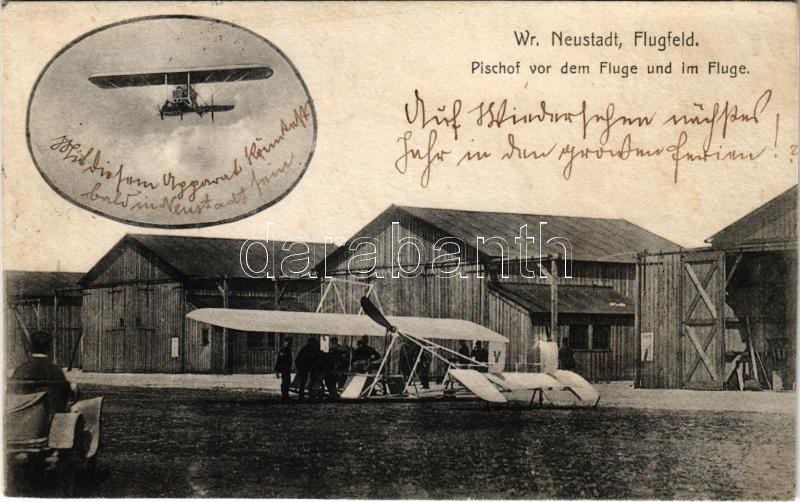 Wr. Neustadt, Flugfeld.
Pischof vor dem Fluge und im Fluge.
Auf Wiedersehen nächstes
Jahr in den großen Ferien!?
Mit diesem Apparat könntest
bald in Neustadt sein.
darabanth.com
V